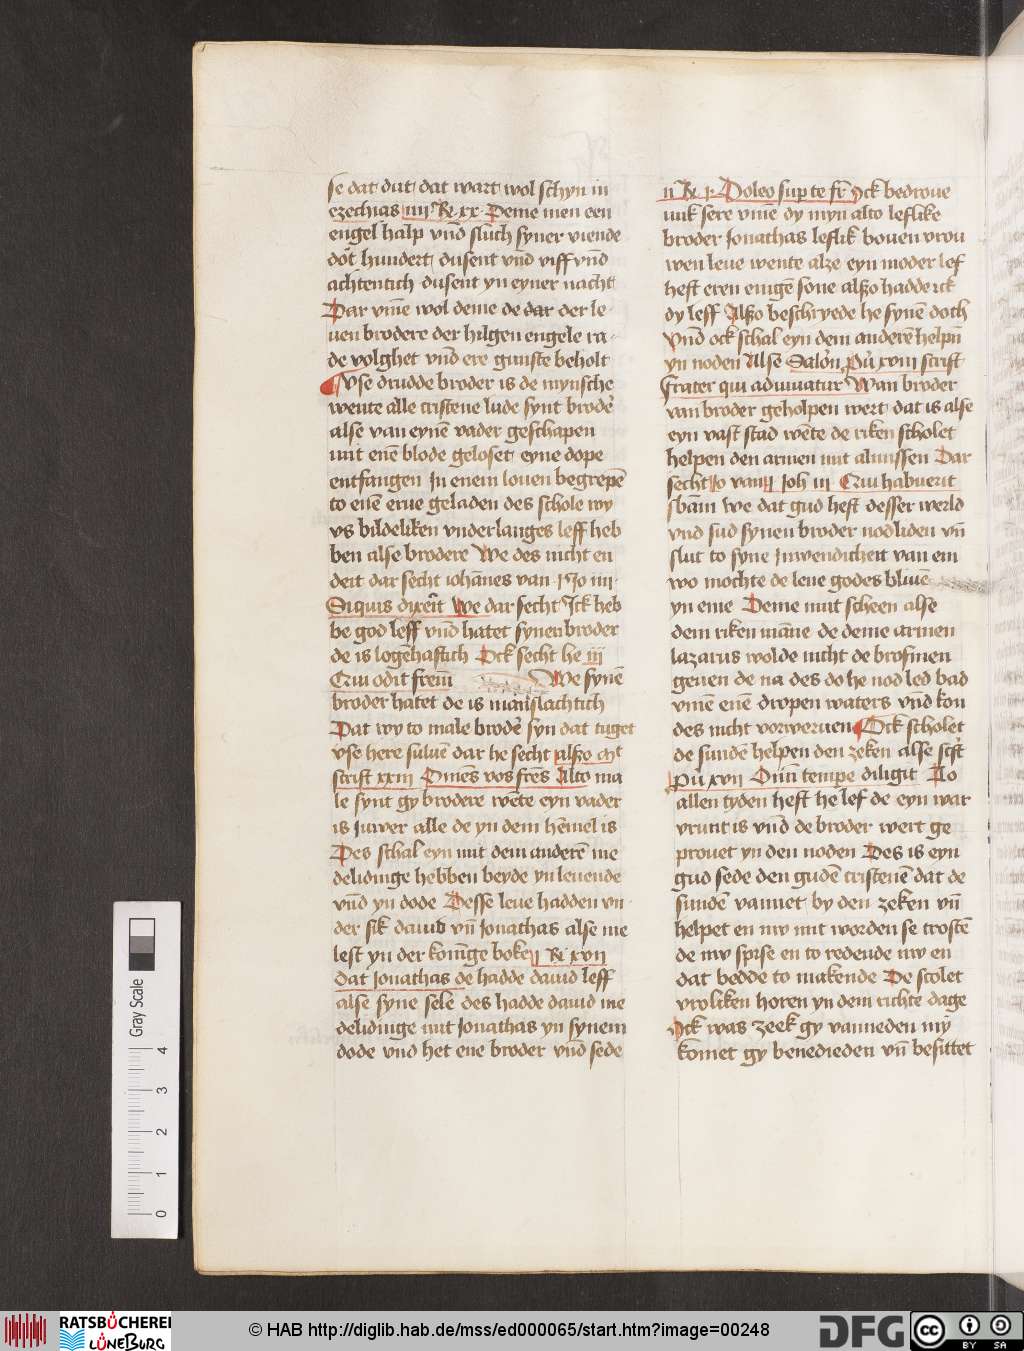 se dat dut dat wart wol schyn in
ezechias iiii Re xx Deme men een
engel halp vnd sluch syner viende
dot hundert dusent vnd viff vnd
achtentich dusent yn eyner nacht
Dar vm̄e wol deme de dar der le
uen brodere der hilgen engele ra
de volghet vnd ere gunste beholt
Vse drudde broder is de mynsche
wente alle cristene lude synt brodē
alse van eynē vader geschapen
mit enē blode geloset eyne dope
entfangen In enem louen begrepē
to enē erue geladen des schole wy
vs bildeliken vnderlanges leff heb
ben alse brodere We des nicht en
deit dar secht iohānes van i Io iiii
Si quis dixerit We dar secht Ick heb
be god leff vnd hatet synen broder
de is logēhaftich Ock secht he iii
Qui odit frem̄ We synē
broder hatet de is manslachtich
Dat wy to male brodē syn dat tuget
vse here suluē dar he secht alszo mt
scrift xxiii Om̄es vos frēs Alto ma
le synt gy brodere wēte eyn vader
is Juwer alle de yn dem hēmel is
Des schal eyn mit dem anderē me
delidinge hebben beyde yn leuende
vnd yn dode Desse leue hadden vn
der sik dauid vn̄ Jonathas alse me
lest yn der konīge boke i Re xvii
dat Jonathas de hadde dauid leff
alse syne sele des hadde dauid me
delidinge mit Jonathas yn synem
dode vnd het ene broder vnd sede
ii Re i Doleo sup te fr̄ Ick bedroue
mik sere vm̄e dy myn alto leflike
broder Jonathas leflik bouen vrou
wen leue wente alze eyn moder lef
heft eren enigē sone alszo hadde ick
dy leff Alszo beschryede he synē doch
Vnd ock schal eyn dem anderē helpn̄
yn noden Alse Salōn pū xviii scrift
Frater qui adiuuatur Wan broder
van broder geholpen wert dat is alse
eyn vast stad wēte de riken scholet
helpen den armen mit almissen Dar
secht Io van i Joh iii Qui habuerit
sbām We dat gud heft desser werld
vnd sud synen broder nodliden vn̄
slut to syne Inwendicheit van em
wo mochte de leue godes bliuē
yn eme Deme mit scheen alse
dem riken māne de deme armen
lazarus wolde nicht de brosmen
geuen de na des do he nod led bad
vm̄e enē dropen waters vnd kon
des nicht vorweruen Ock scholet
de sundē helpen den zeken alse scft
Pū xvii Omī tempe diligit To
allen tyden heft he lef de eyn war
vrunt is vnd de broder wert ge
prouet yn den noden Des is eyn
gud sede den gudē cristenē dat de
sundē vannet by den zeken vn̄
helpet en mw mit worden se trostē
de mw sprse en to redende mw en
dat bedde to makende De scolet
vroliken horen yn dem richte dage
Ick was zeek gy vanneden my
komet gy benedieden vn̄ besittet
Gray Scale
0 1 2 3 4
RATSBÜCHEREI
LÜNEBURG
© HAB http://diglib.hab.de/mss/ed000065/start.htm?image=00248
DFG
cc
BY SA